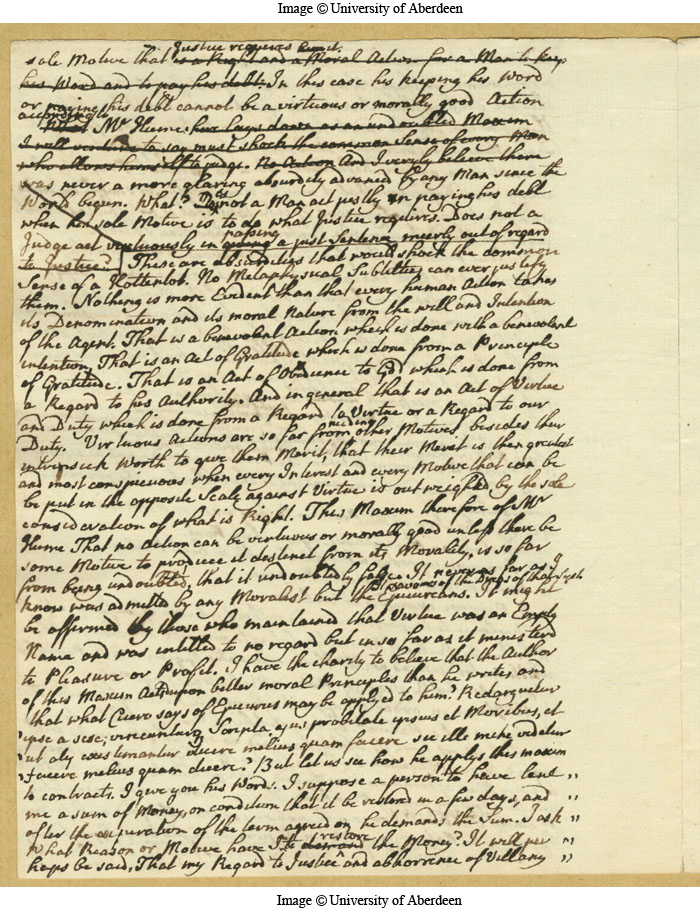 Image © University of Aberdeen
Justice requires him it.
sole Motive that is a Right and a Moral Action for a Man to keep
his Word and to pay his debt. In this case his keeping his Word
or paying his debt cannot be a virtuous or morally good Action
according to
What Mr Hume has layn down as an undoubted Maxim
I will venture to say must shock the common Sense of every Man
who allows himself to judge. No Action And I verily believe there
was never a more glaring absurdity advanced by any Man since the
World begun. What? Does not a Man act justly in paying his debt
when his sole Motive is to do what Justice requires. Does not a
passing
Judge act virtuously in giving a just Sentence meerly out of regard
to Justice? These are absurdities that would shock the common
Sense of a Hottentot. No Metaphysical Subtilties can ever justify
them. Nothing is more Evident than that every human Action takes
its Denomination and its moral Nature from the will and Intention
of the Agent. That is a benevolent Action which is done with a benevolent
intention. That is an Act of Gratitude which is done from a Principle
of Gratitude. That is an Act of Obedience to God which is done from
a Regard to his Authority. And in general that is an Act of Virtue
and Duty which is done from a Regard to Virtue or a Regard to our
Duty. Virtuous Actions are so far from needing other Motives besides their
intrinsick Worth to give them Merit, that their Merit is then greatest
and most conspicuous when every Interest and every Motive that can be
be put in the opposite Scale against Virtue is out weighed by the sole
consideration of what is Right. This Maxim therefore of Mr
Hume That no Action can be virtuous or morally good unless there be
some Motive to produce it distinct from its Morality, is so far
from being undoubted, that it undoubtedly false. It never was as far as I
know was admitted by any Moralist but the Epicureans. It
favours of the Dregs of that System
might
be affirmed by those who maintained that Virtue was an Empty
Name and was intitled to no regard but in so far as it ministerd
to Pleasure or Profit. I have the charity to believe that the Author
of this Maxim Acts upon better moral Principles than he writes and
that what Cicero says of Epicurus may be applyed to him? Redarguitur
ipse a sese, vincuntur Scripta ejus probitate ipsius et Moribus, et
ut alij existimantur dicere melius quam facere sic ille mihi videtur
facere melius quam dicere? But let us see how he applys this maxim
to contracts. I give you his Words. I suppose a person to have lent "
me a sum of Money, on condition that it be restored in a few days, and "
after the expiration of the term agreed on he demands the Sum. I ask "
restore
What Reason or Motive have I to demand the Money? It will per "
haps be said, That my Regard to Justice and abhorrence of Villany "
Image © University of Aberdeen